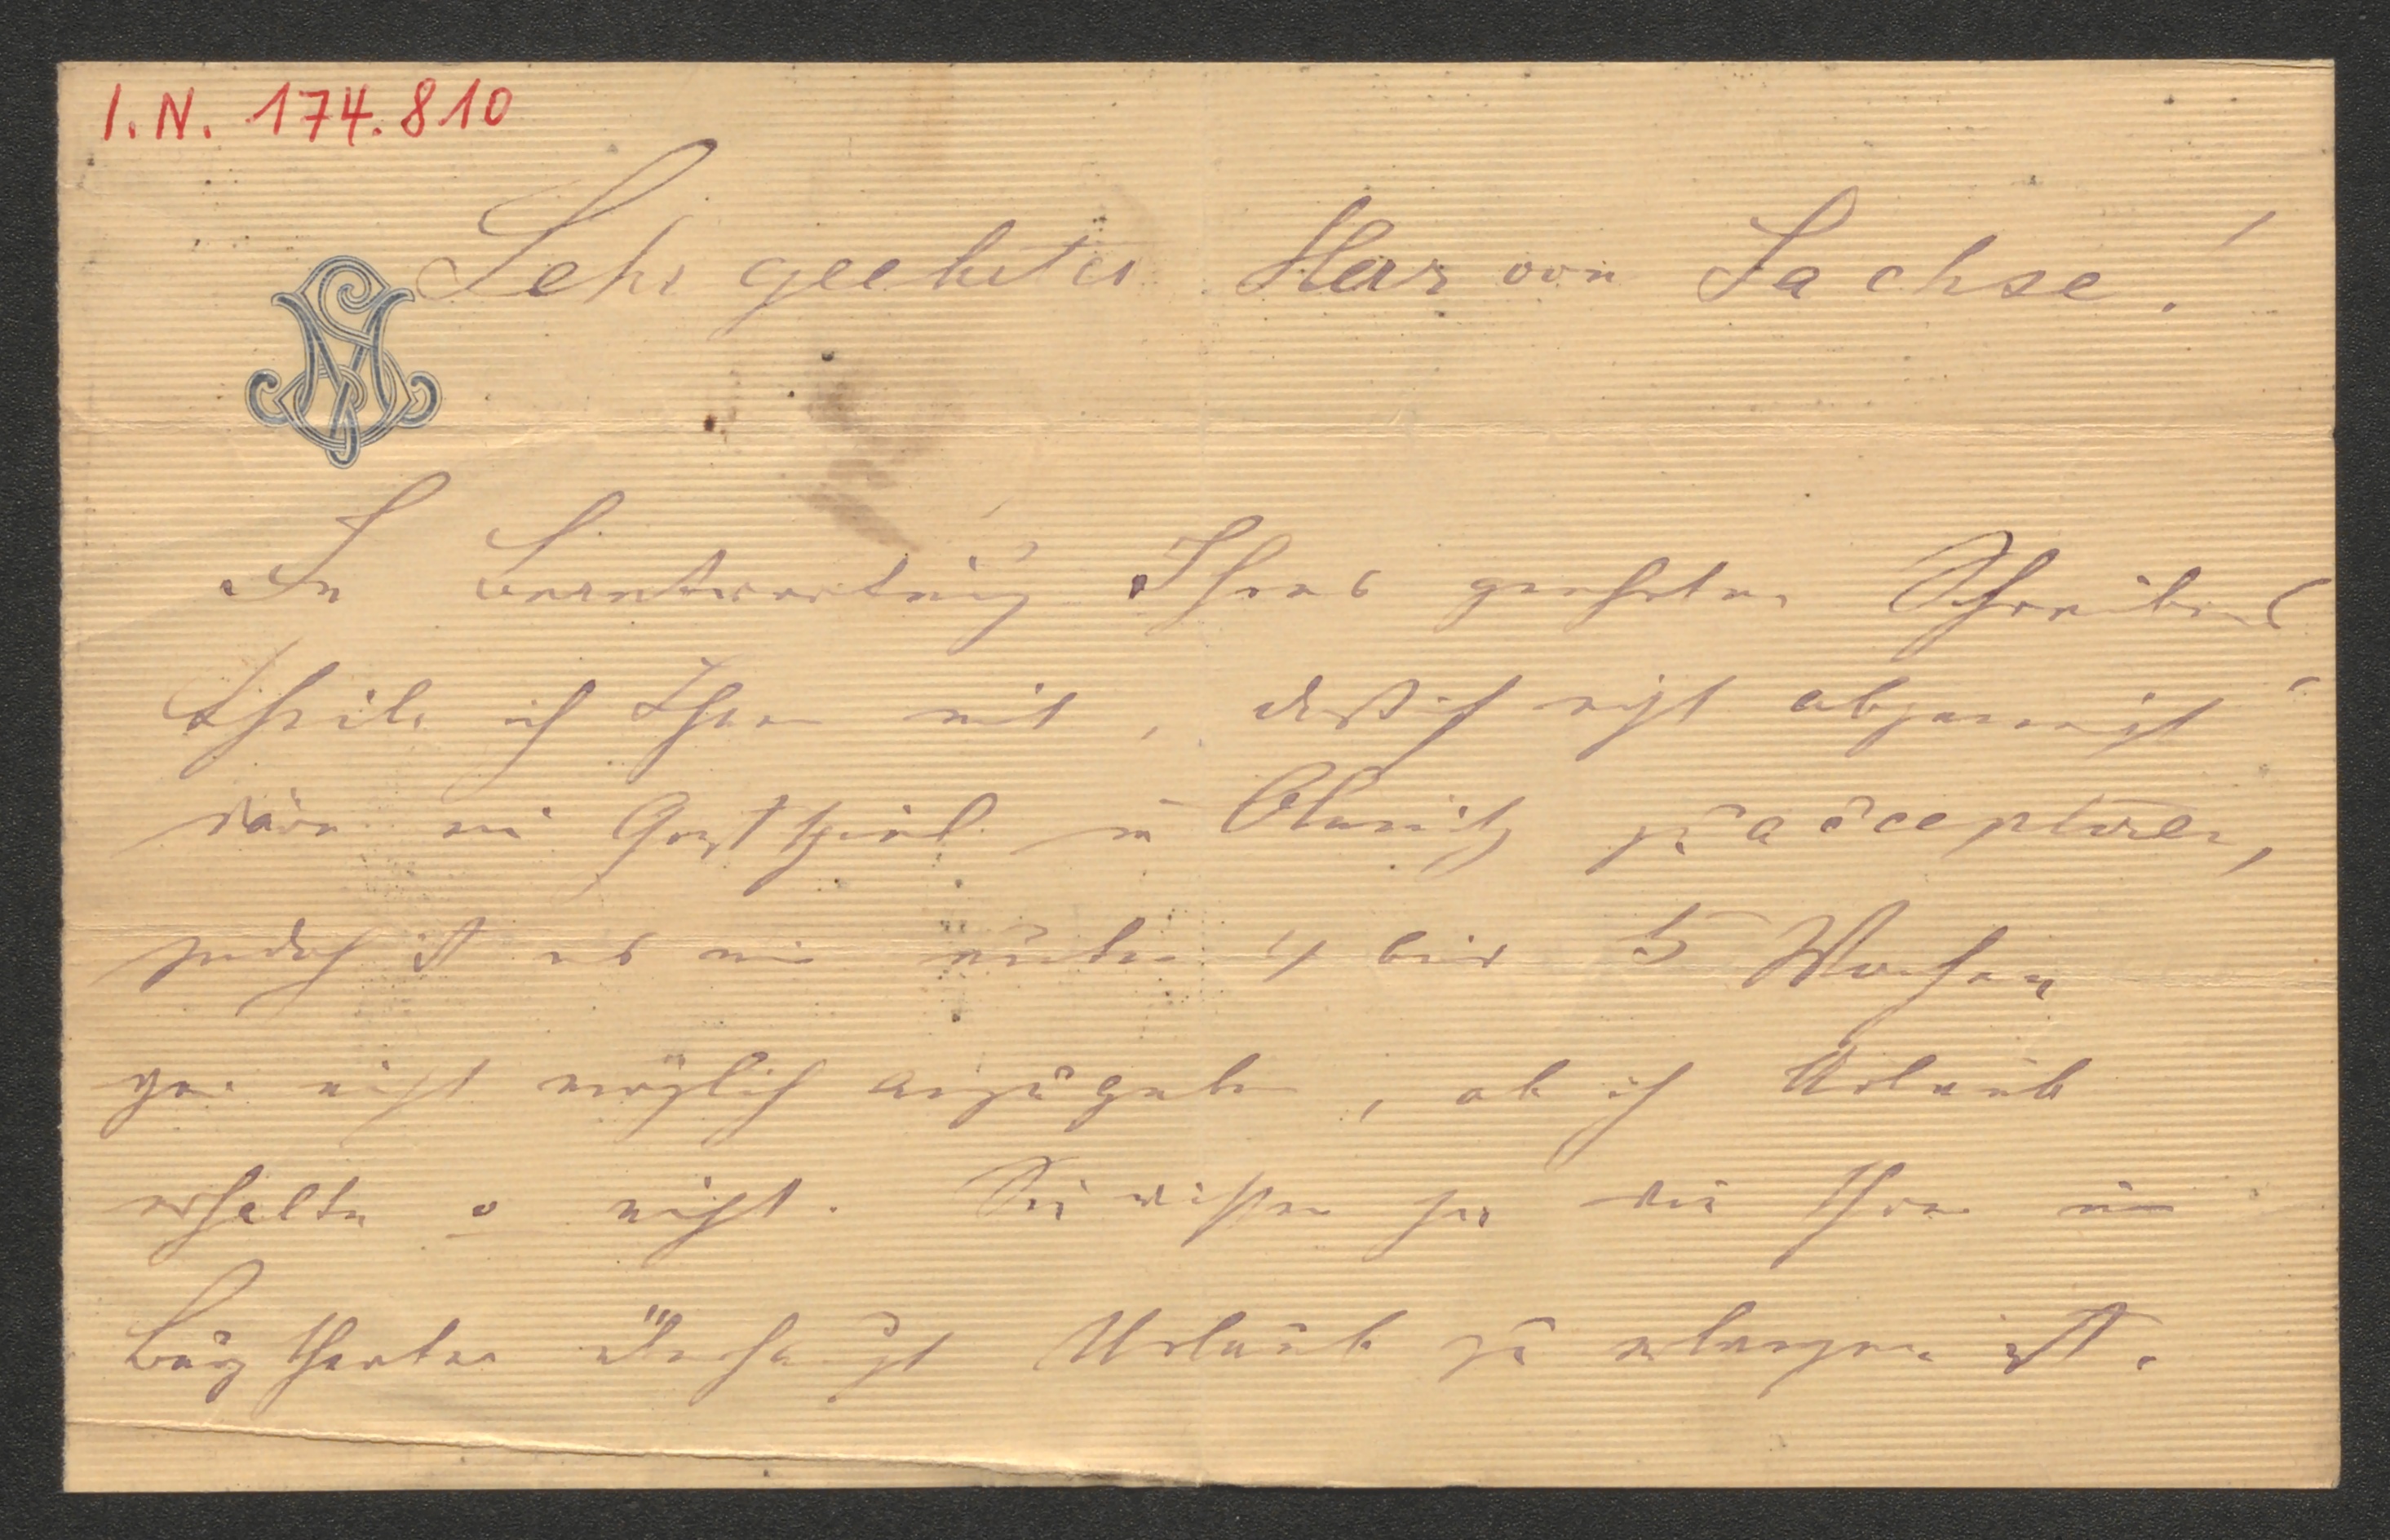 I.N. 174.810
Sehr geehrter Herr von Sachse!
In Beantwortung Ihres geehrten Schreibens
theile ich Ihnen mit, daß ich nicht abgeneigt
wäre ein Gastspiel in Olmütz zu acceptiren,
jedoch ist es mir unter 4 bis 5 Wochen
gar nicht möglich anzugeben, ob ich Urlaub
erhalte o nicht. Sie wissen ja wie schwer im
Burgtheater überhaupt Urlaub zu erlangen ist.